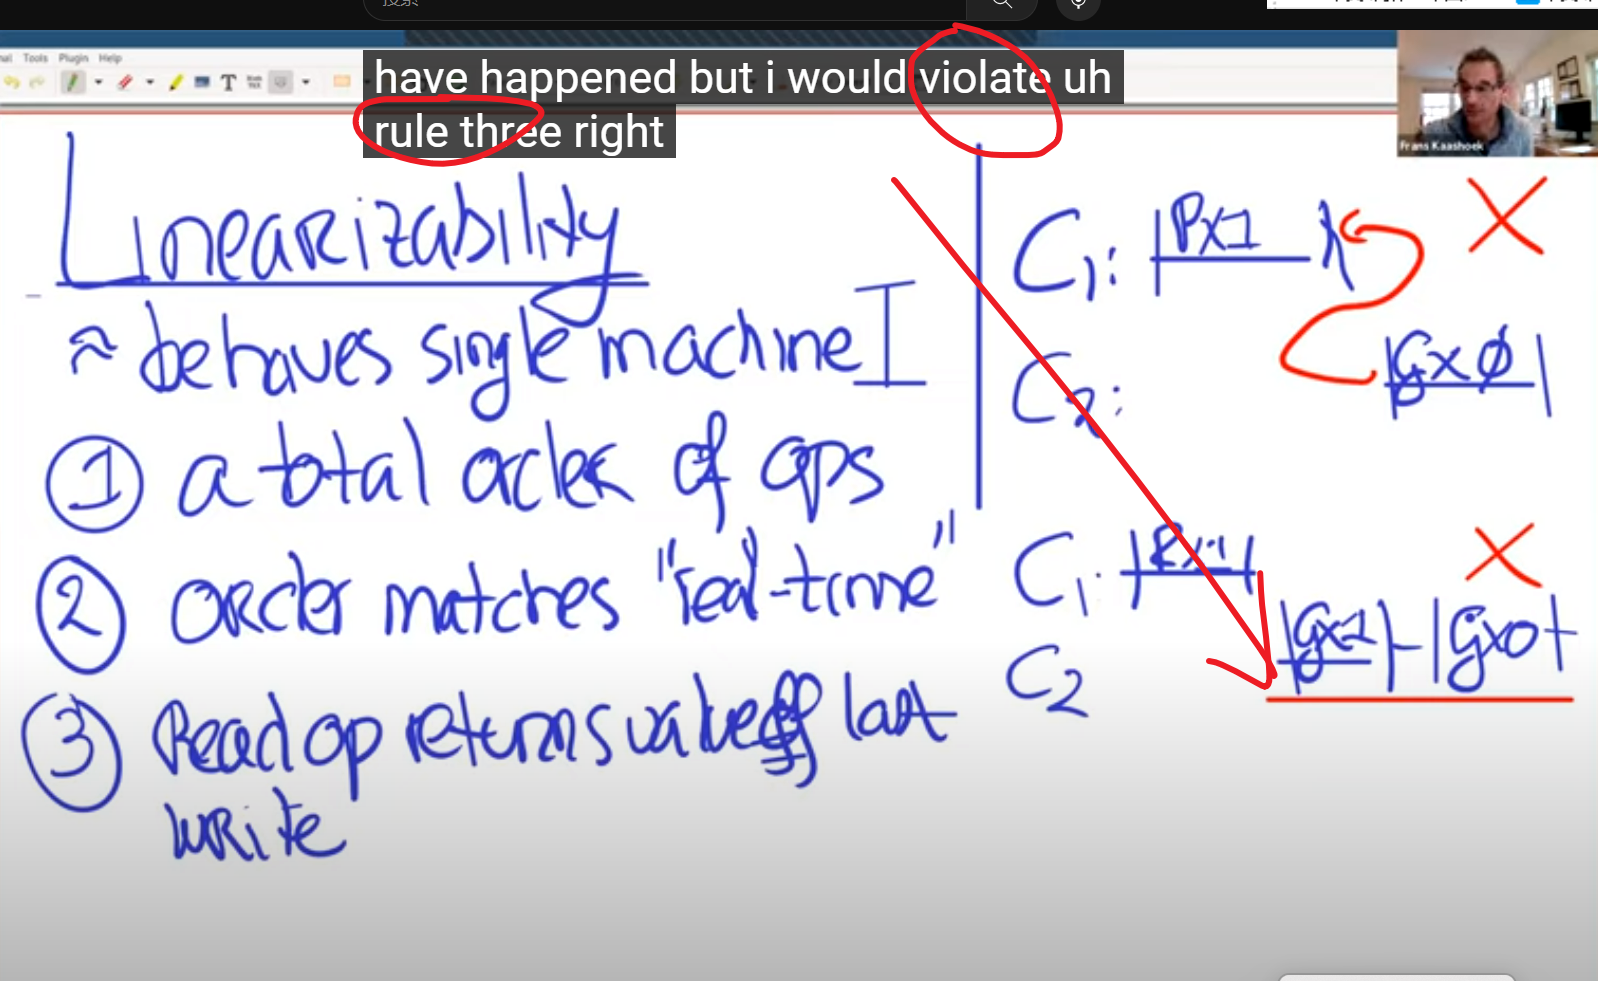 搜索
Tools Plugin Help
T
have happened but i would violate uh
rule three right
Frans Kaashoek
Linearizability
≈ behaves single machine
① a total order of ops
② order matches "real-time"
③ Read op returns value of last
write
C1: |Px1|
C2: |gxØ|
C1: |Px1|
C2 |gx1|-|gx0|